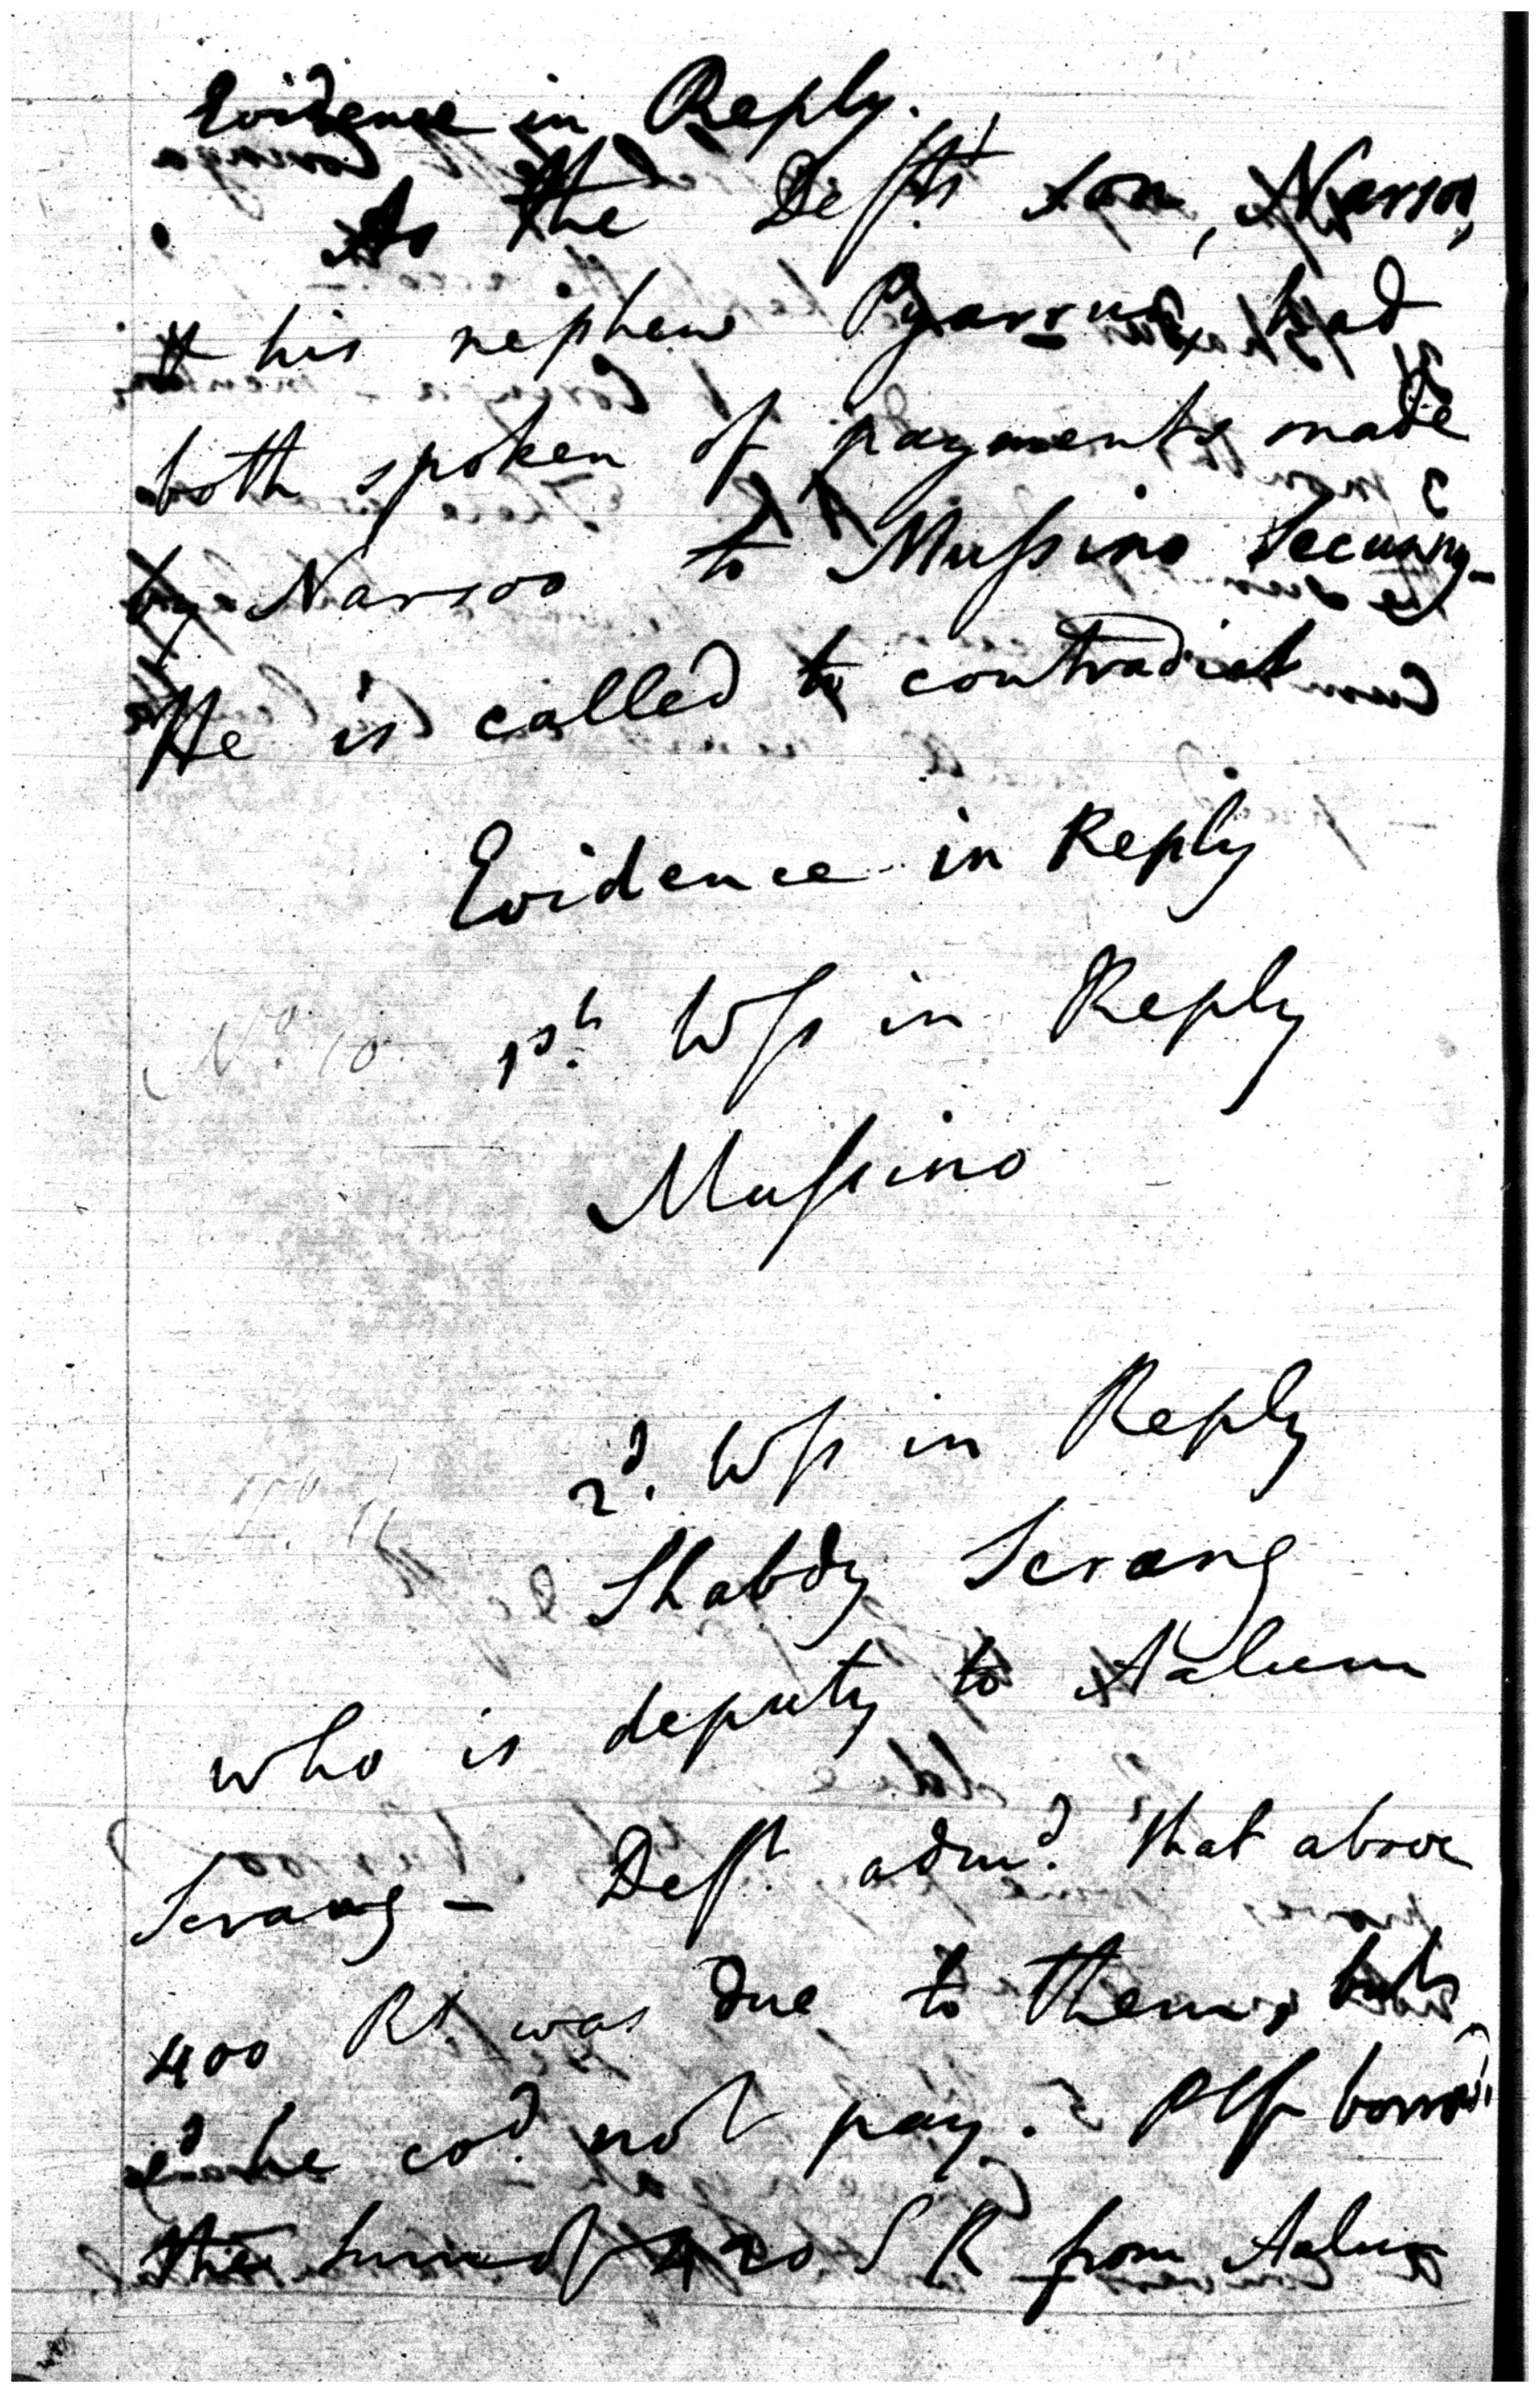 Evidence in Reply.
As the Deft's son, Narsoo,
& his nephew had
both spoken of payments made
by Narsoo to Mussino Secunny -
He is called to contradict
Evidence in Reply
No. 10 1st. Wss in Reply
Mussino
No. 11 2d. Wss in Reply
Shabdy Serang
who is deputy to Aalum
Serang - Deft. admd. that above
400 Rs. was due to them, but
he cod. not pay. Plff borrowd.
the sum of 420 S R from Aalum